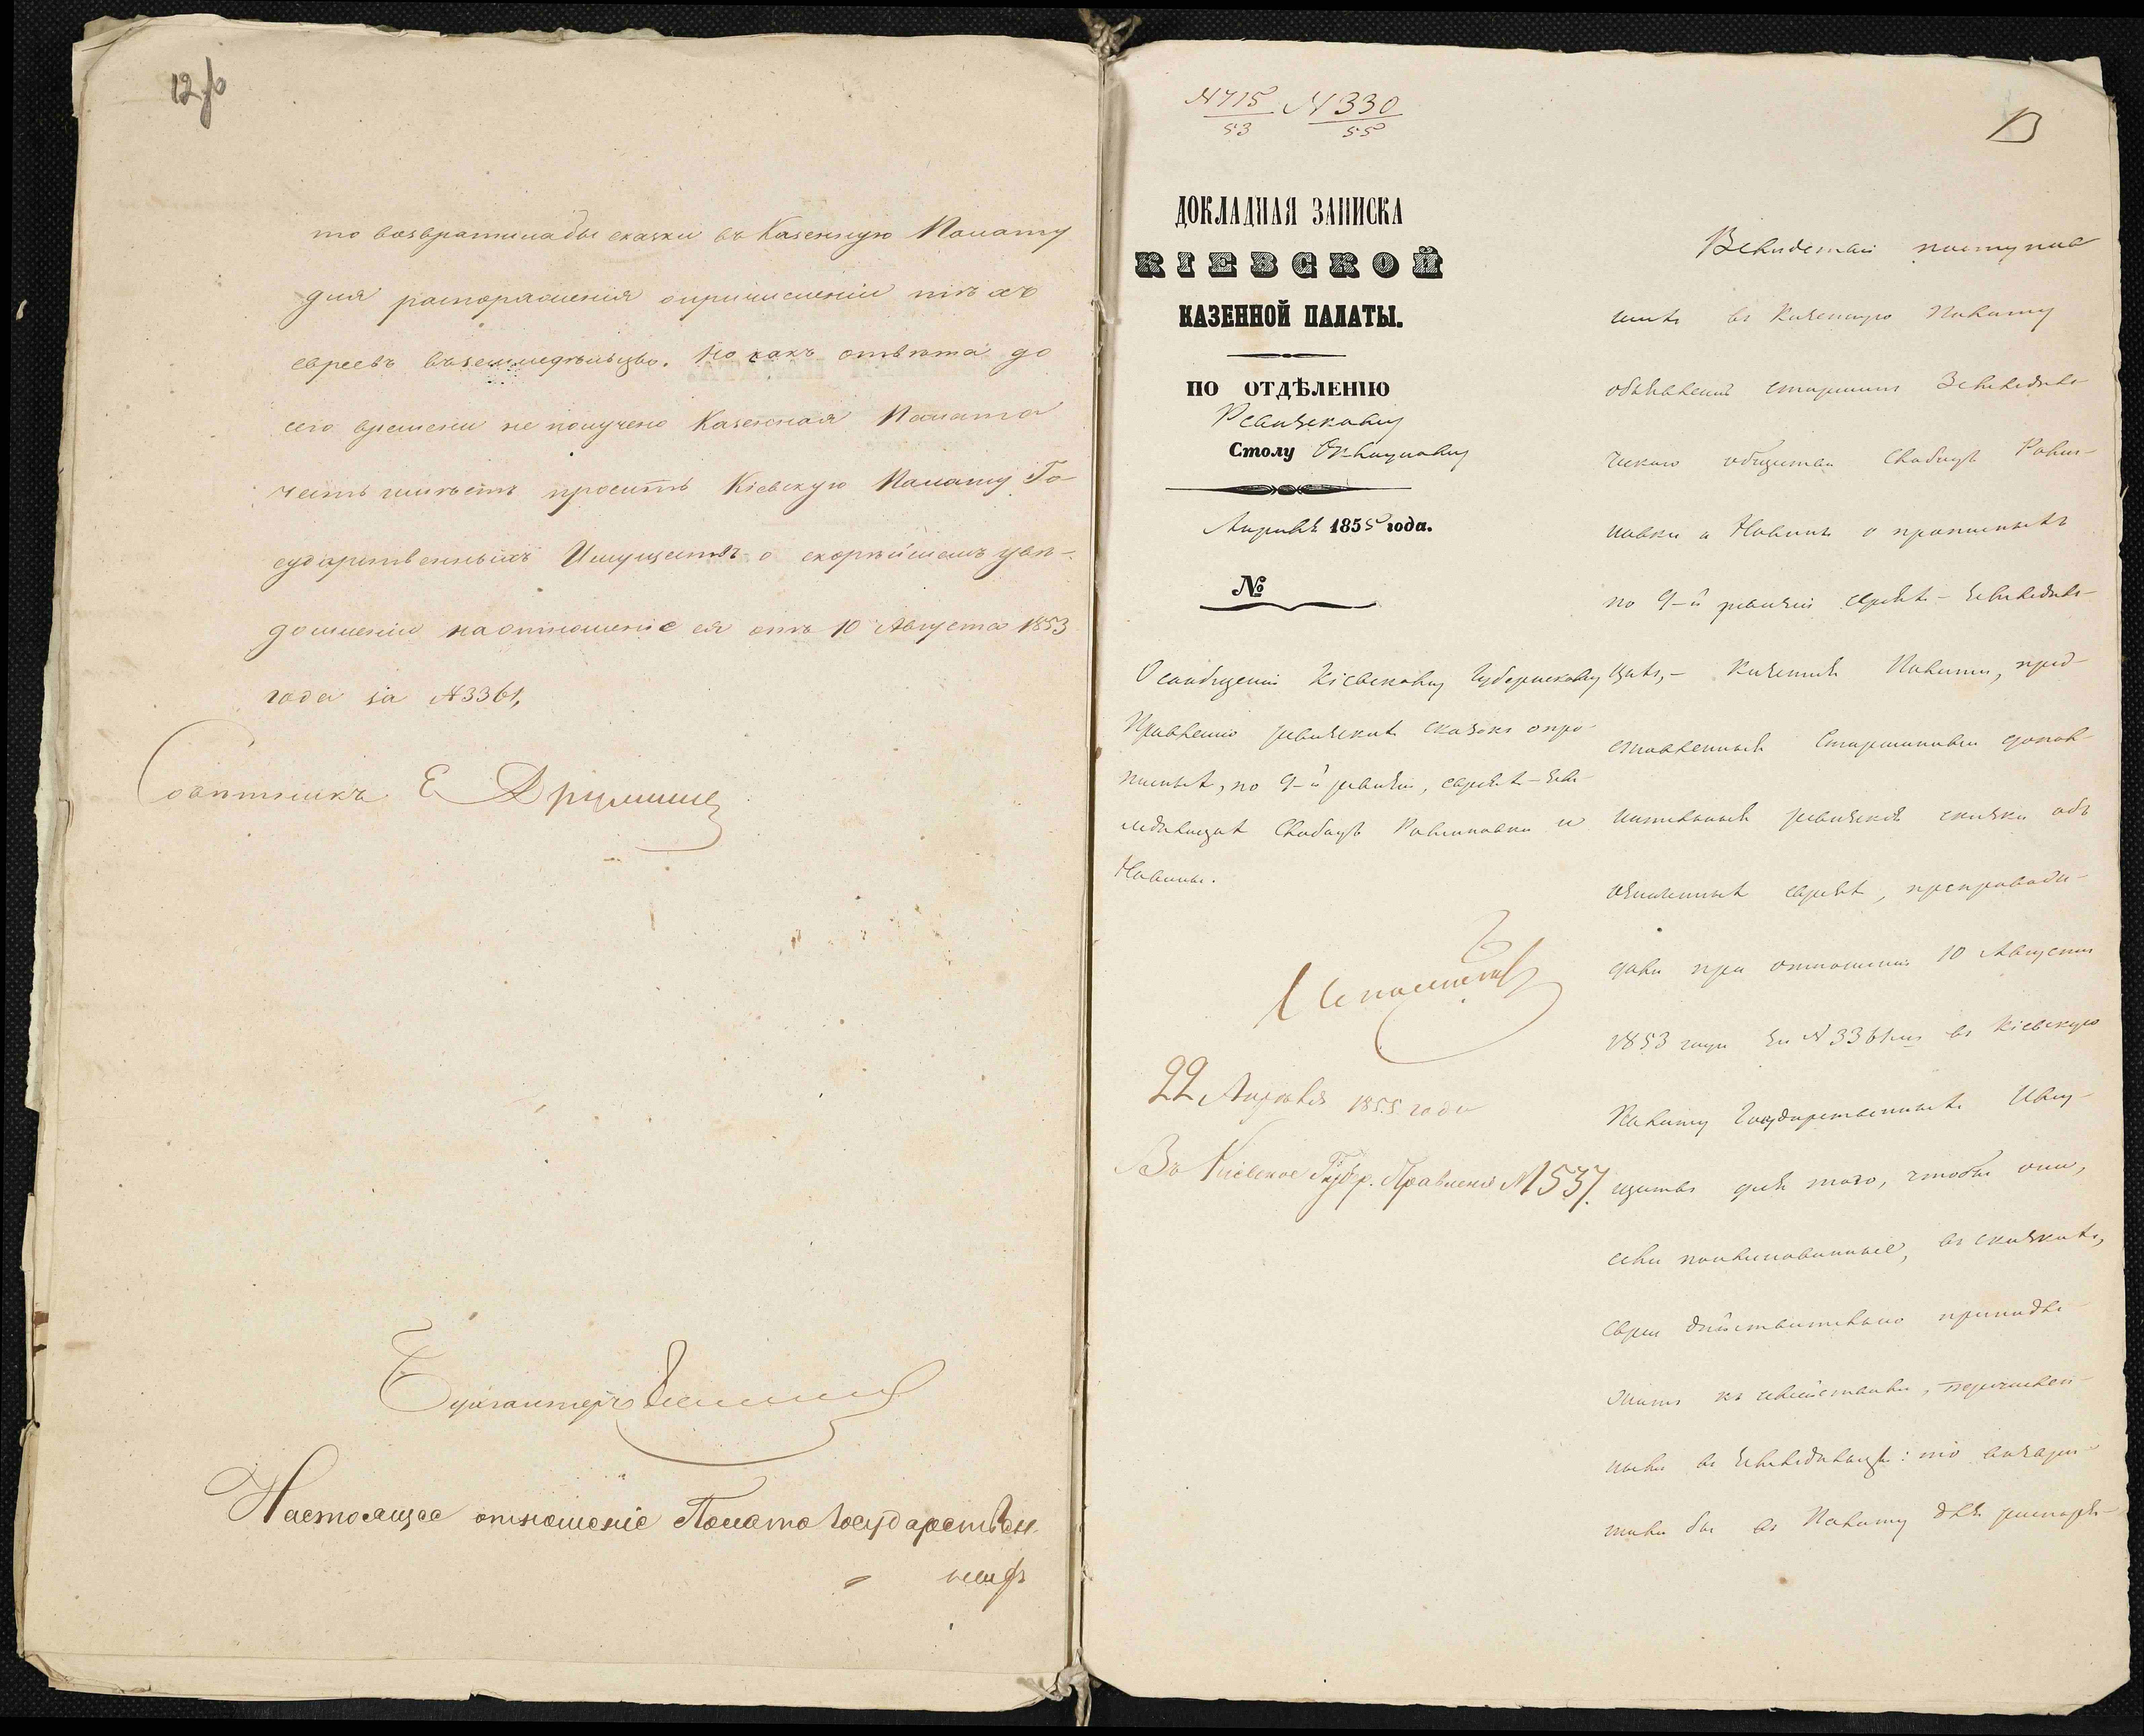 12 об
то возвратила бы сказки въ Казенную Палату
для распоряженія опричисленіи тѣхъ
евреевъ въземледѣльцы. Но какъ отвѣта до
сего времени не получено Казенная Палата
честь имѣетъ просить Кіевскую Палату Го-
сударственныхъ Имуществъ о скорѣйшемъ увѣ-
домленіи наотношеніе ея отъ 10 Августа 1853
года за №3361,
Совѣтникъ Е
Бухгалтеръ
Настоящее отношеніе Палата Государствен-
ныхъ
№ 715/53 № 330/55
13
ДОКЛАДНАЯ ЗАПИСКА
КІЕВСКОЙ
КАЗЕННОЙ ПАЛАТЫ.
ПО ОТДѢЛЕНІЮ
Ревизскому
Столу Окладному
Апрѣля 1855 года.
№
О сообщеніи Кіевскому Губернскому
Правленію ревизскихъ сказокъ опро-
писныхъ, по 9-й ревизіи, евреяхъ-зем-
ледѣльцахъ Слободъ Равнополки и
22 Апрѣля 1855 года
Въ Кіевское Губр. Правленіе № 537.
Вслѣдствіе поступив
шихъ въ Казенную Палату
объявленій старшинъ Земледѣль-
ческаго общества Слободъ
о прописныхъ
по 9-й ревизіи евреяхъ-земледѣль-
цахъ,- Казенная Палата, пред-
ставленныя Старшинами допол-
нительныя ревизскія сказки объ
означенныхъ евреяхъ, препроводи-
дила при отношеніи 10 Августа
1853 года за № 3361мъ въ Кіевскую
Палату Государственныхъ Иму-
ществъ для того, чтобы она,
если поименованные, въ сказкахъ,
евреи дѣйствительно принадле
жатъ къ семействамъ, перечислен-
нымъ въ земледѣльцы: то возвра-
тила бы въ Палату для распоря-